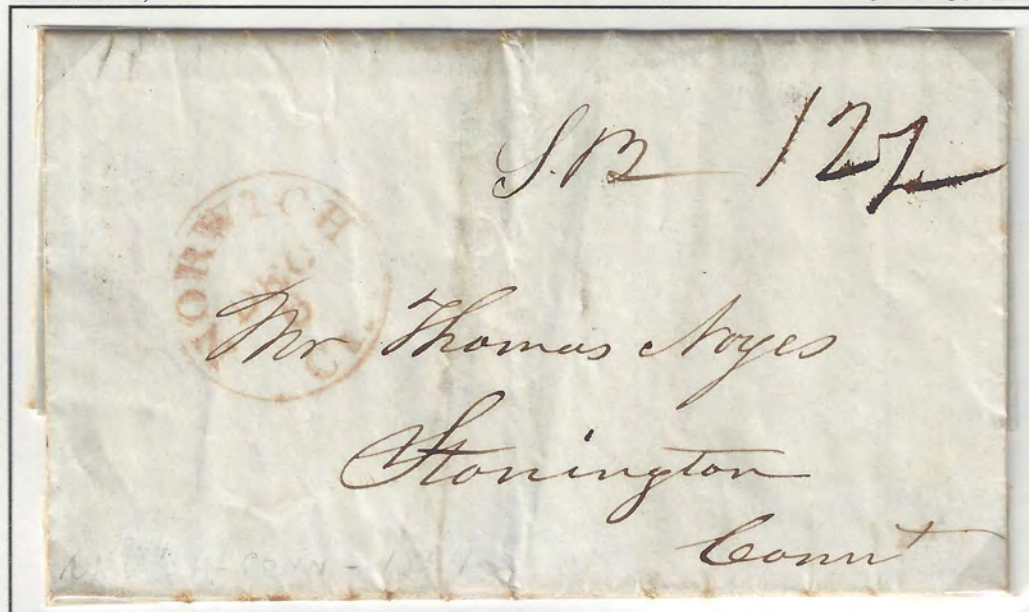 S.B 12½
NORWICH CT.
DEC
Mr Thomas Noyes
Stonington
Connt
CONN